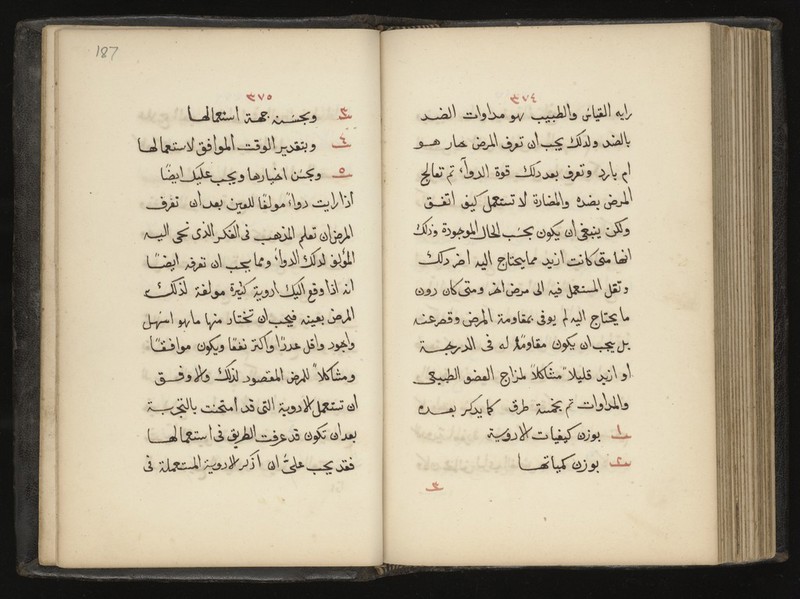 ٣٧٤
رايه القياس والطبيب هو مداوات الضد
بالضد ولذلك يجب ان تعرف المرض حار هو
ام بارد وتعرف بعد ذلك قوة الدوآء ثم تعالج
المرض بضده والمضادة لا تستعمل كيف اتفق
ولكن ينبغي ان يكون بحسب الحال الموجودة وذلك
انها متى كانت ازيد مما يحتاج اليه اضر ذلك
وتقل المستعمل فيه الى مرض اخر ومتى كان دون
ما يحتاج اليه لم يوفى بمقاومة المرض وقصر عنه
بل يجب ان يكون مقاومًا له في الدرجة
او ازيد قليلاً مشاكلاً لمزاج العضو الطبيعي
والمداوات تم بخمسة طرق كما يذكر بعده
١ بوزن كيفيات الادوية
٢ بوزن كمياتها
٣
187
٣٧٥
٣ وبحسن جهة استعمالها
٤ وبتقدير الوقت الموافق لاستعمالها
٥ وبحسن اختيارها ويجب عليك ايضًا
اذا رايت دواءً مولفًا للعين بعد ان تعرف
المرض ان تعلم المذهب في الفكر الذي نحى اليه
المؤلف لذلك الدواء ومما يجب ان تعرفه ايضًا
انه اذا وقع اليك ادوية كثيرة مولفة لذلك
المرض بعينه فيجب ان تختار منها ما هو اسهل
واجود واقل عددًا واكثر نفعًا ويكون موافقًا
ومشاكلاً للمرض المقصود لذلك والاوفق
ان تستعمل الادوية التي قد امتحنت بالتجربة
بعد ان تكون قد عرفت الطريق في استعمالها
فقد يجب عليَّ ان اذكر الادوية المستعملة في